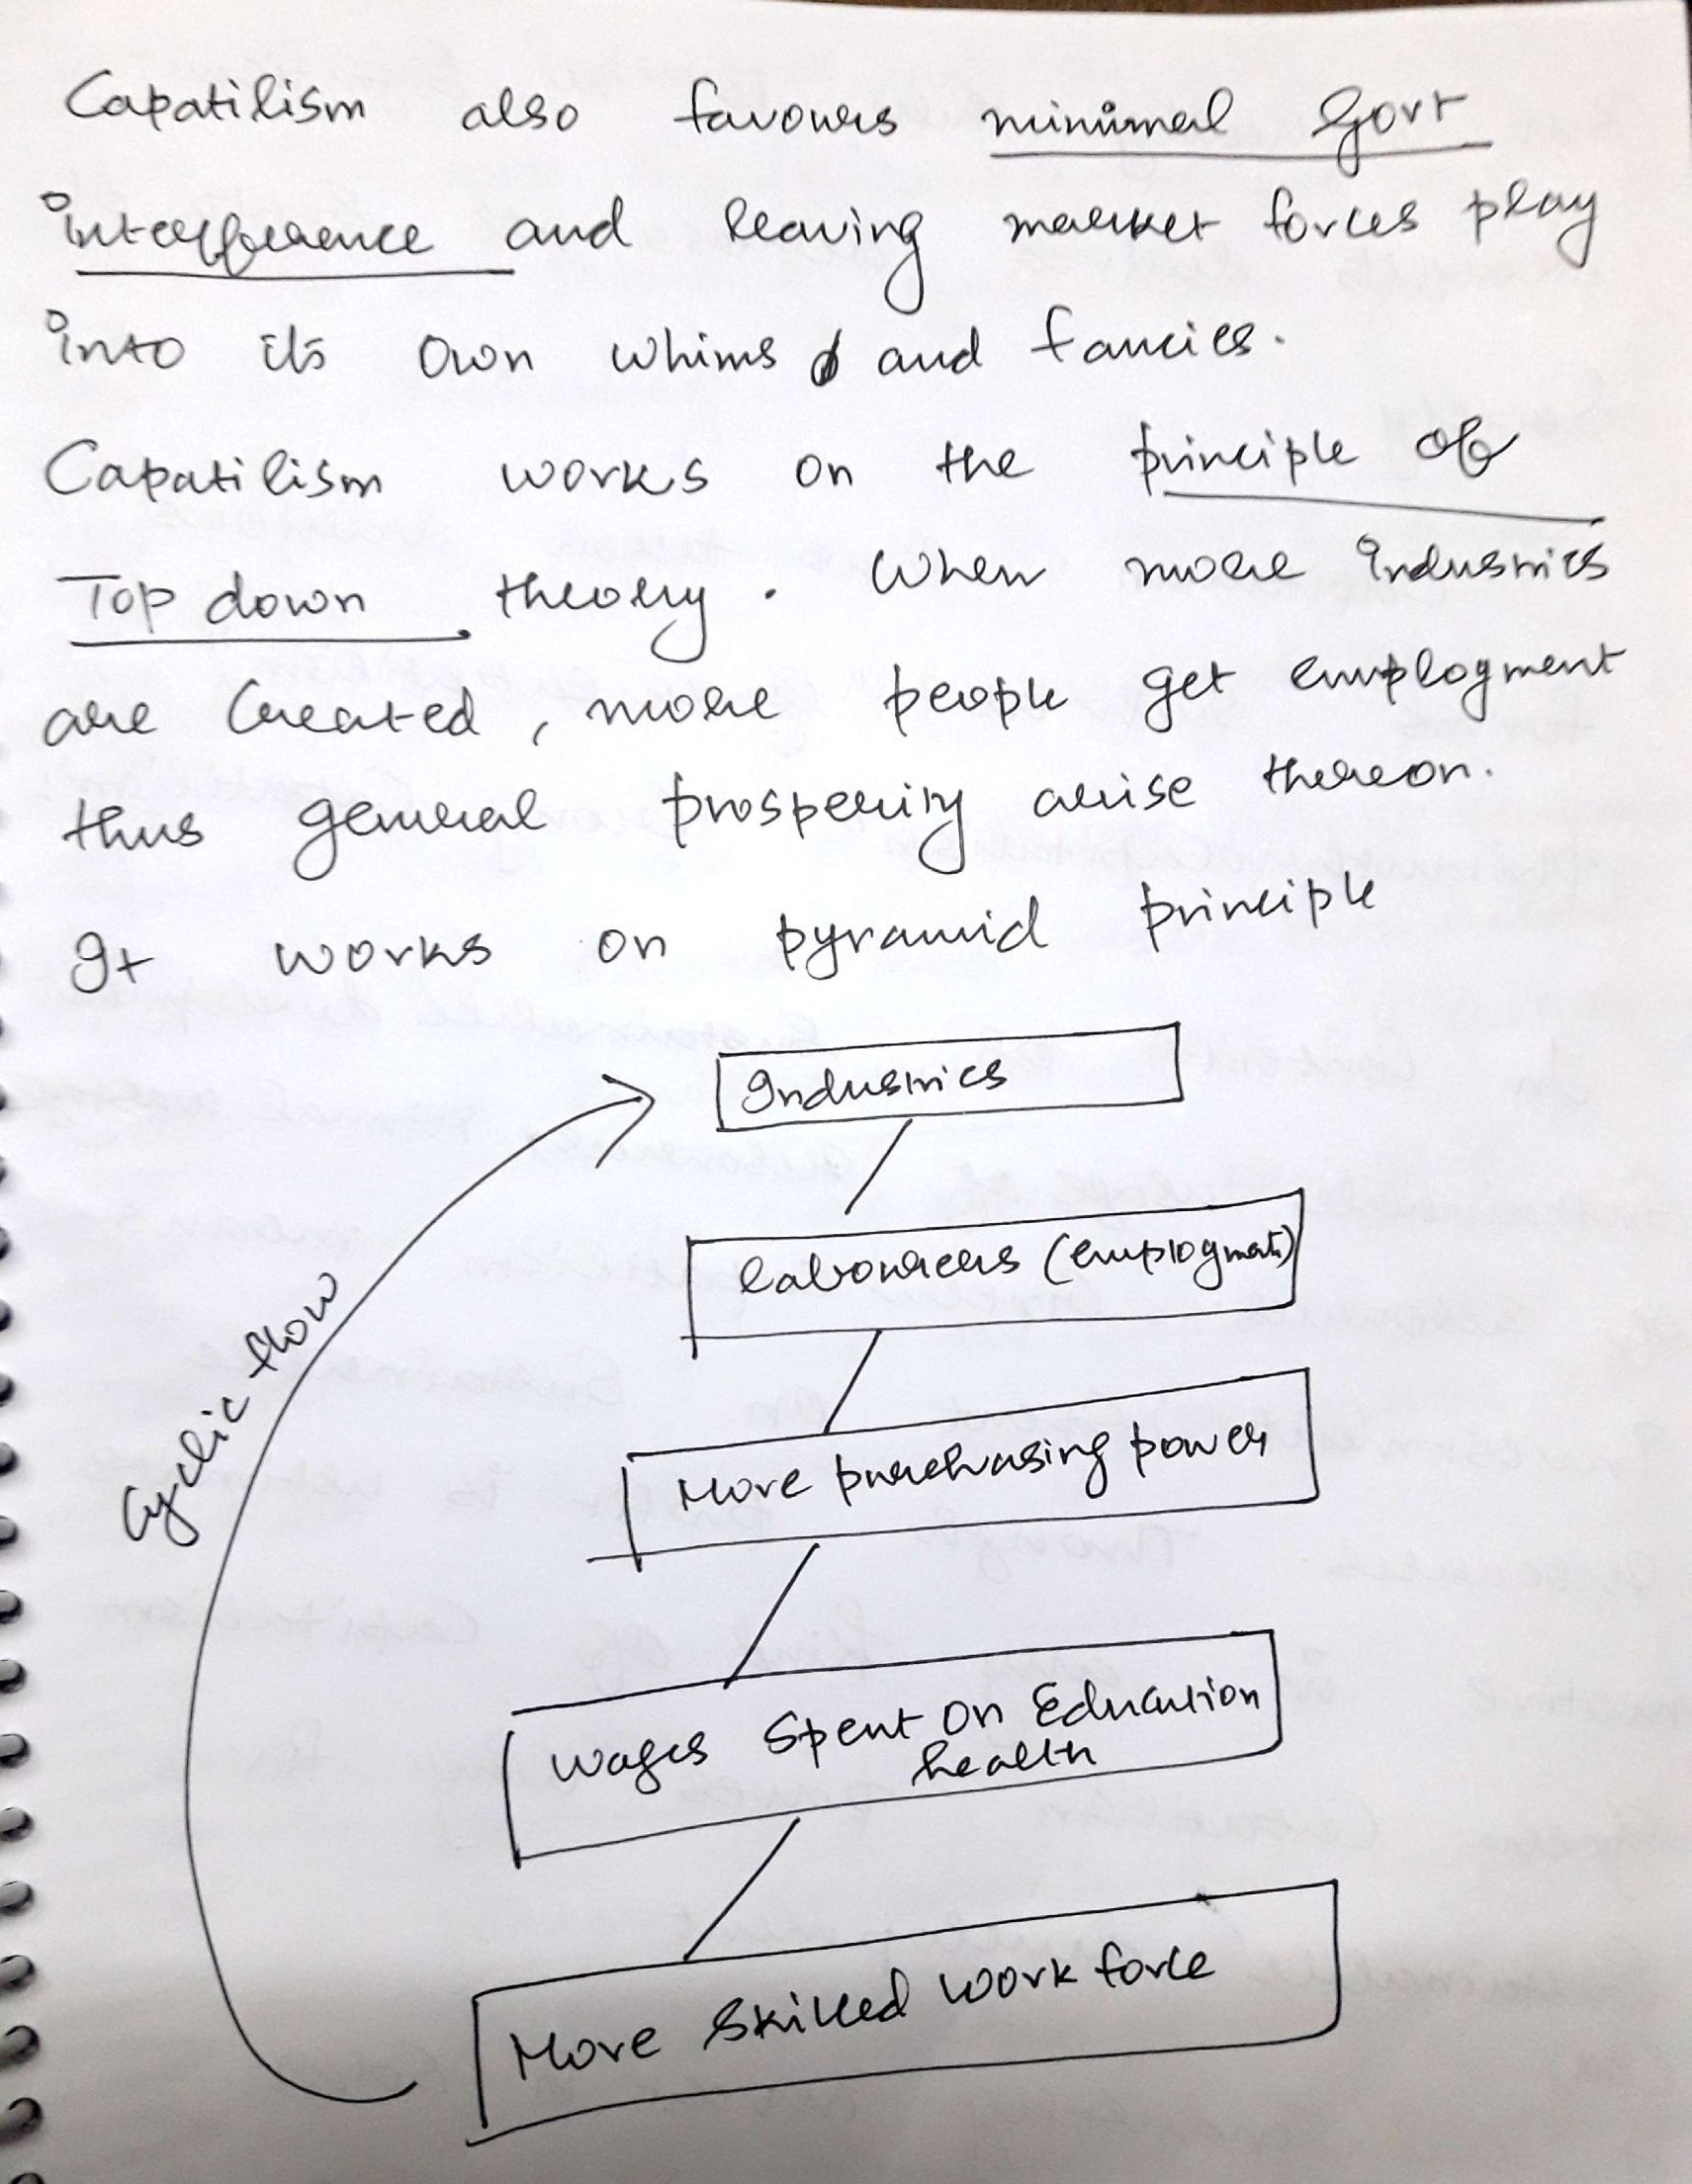 Capatilism also favours minimal Govt
interfference and leaving market forces play
into its own whims and fancies.
Capatilism works on the principle of
Top down theory. When more industries
are Created, more people get employment
thus general prosperity arise thereon.
It works on pyramid principle
Industries
labourers (employment)
More purchasing power
Cyclic flow
Wages Spent On Education
health
More Skilled Work force